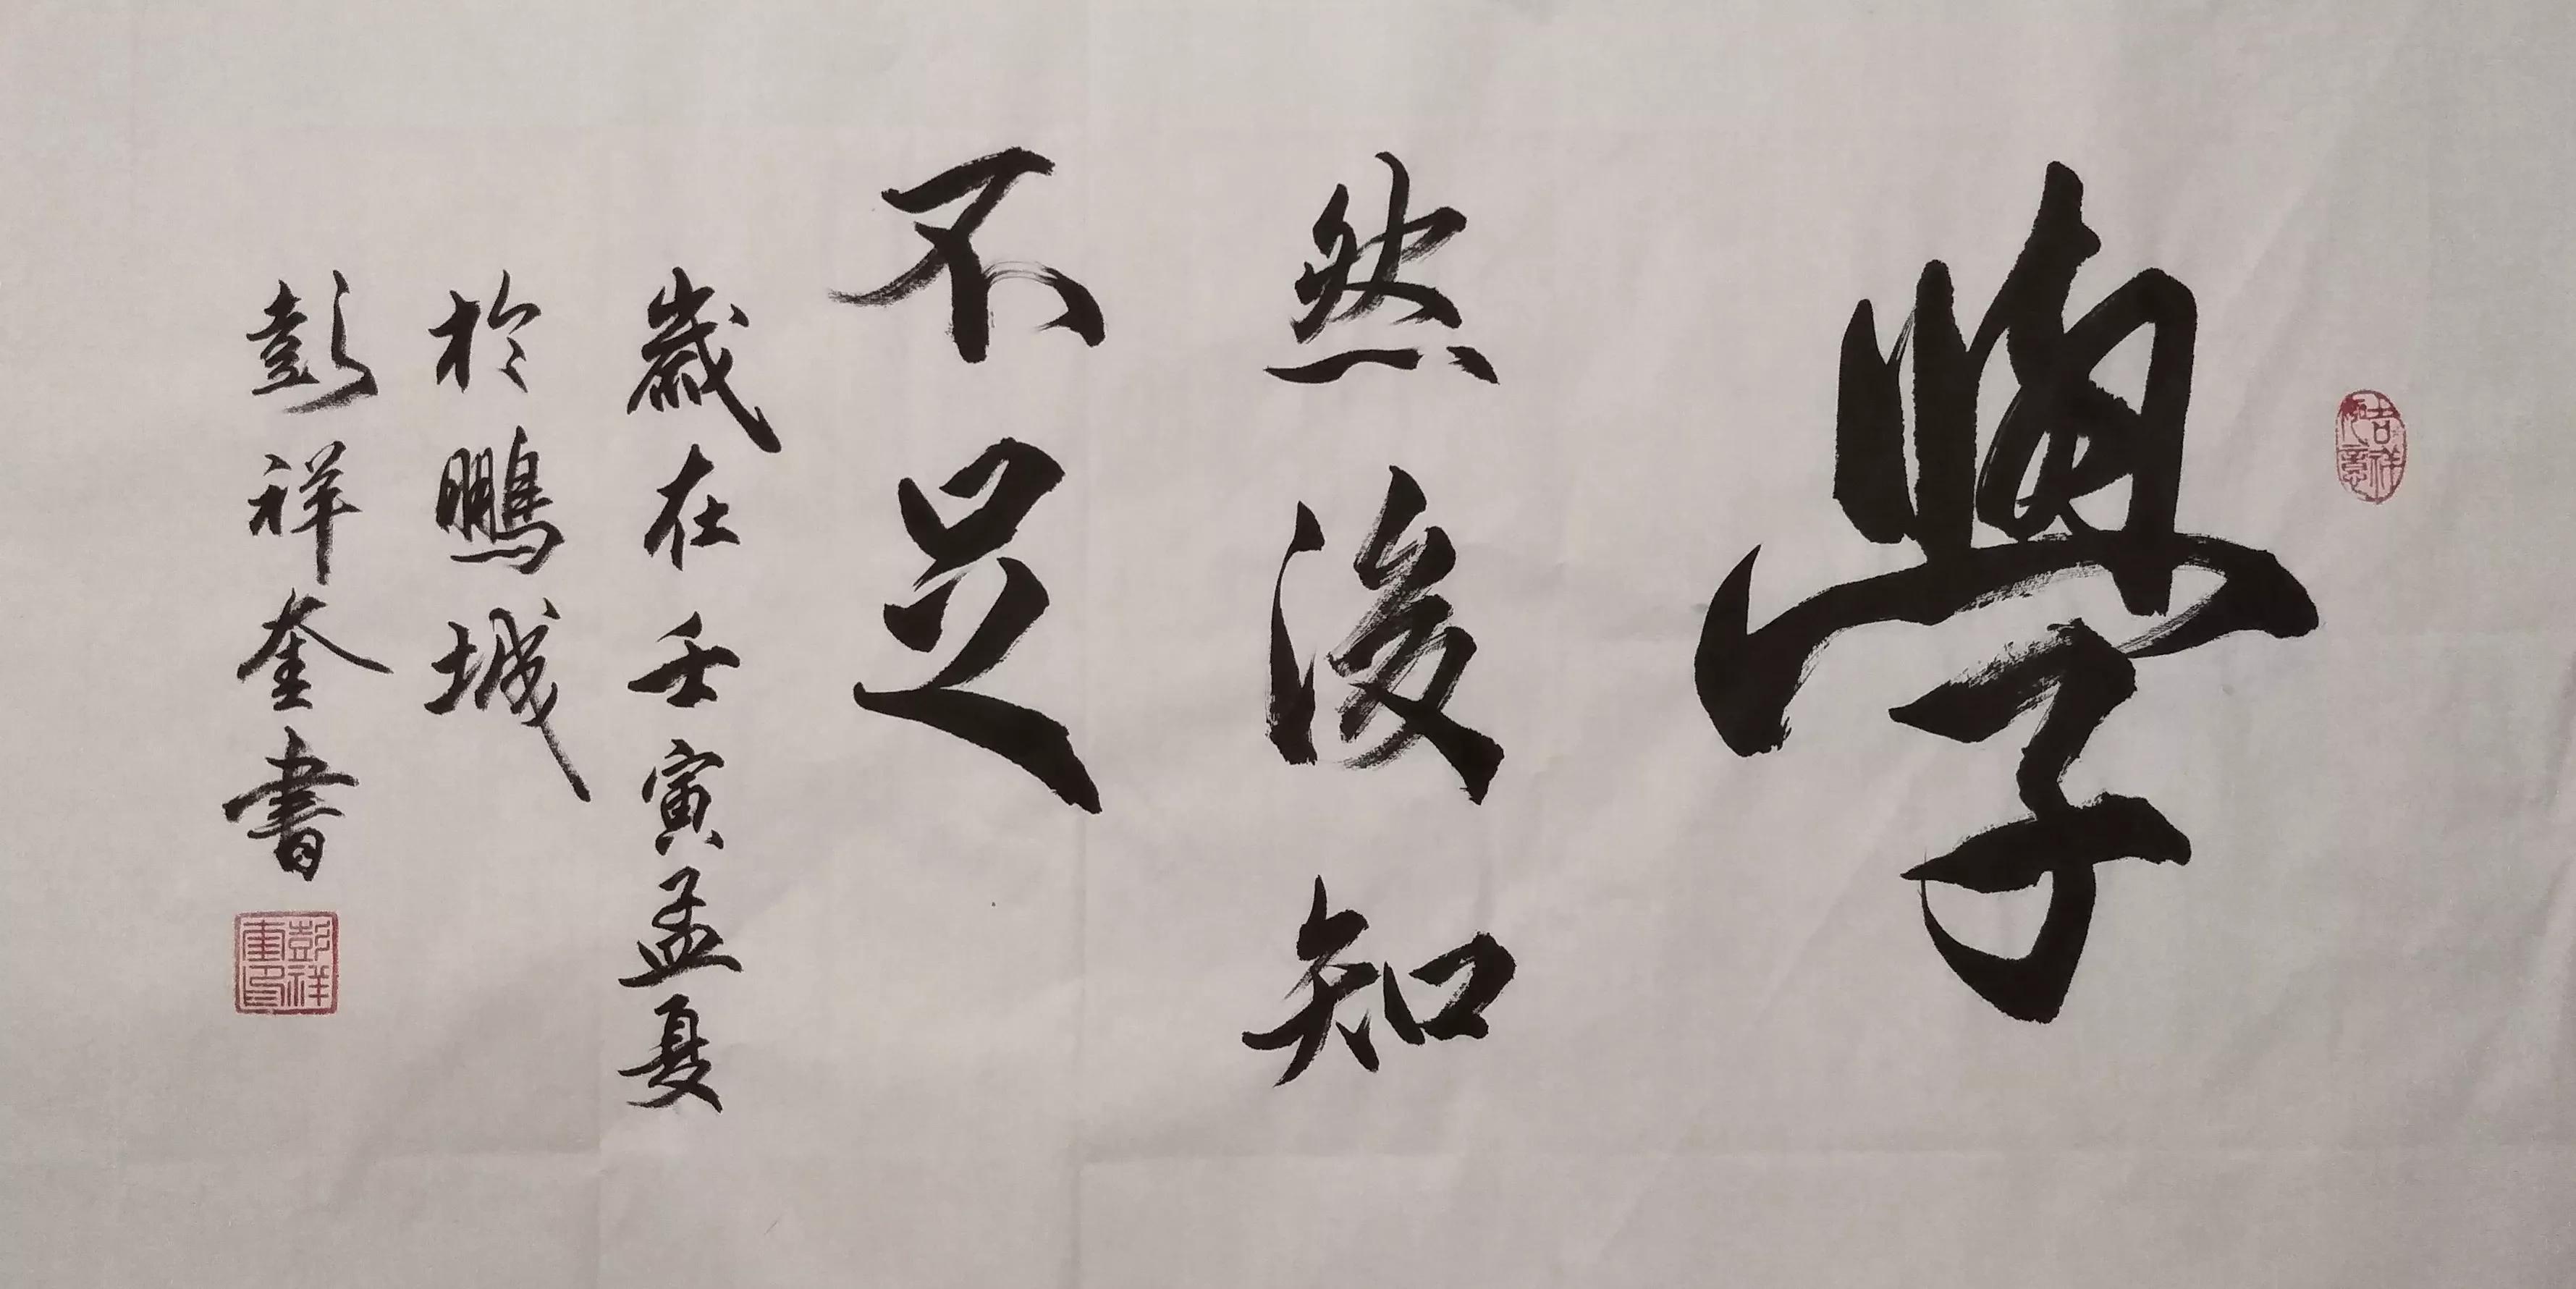 學
然後知
不足
歲在壬寅孟夏
於鵬城
彭祥奎書
吉祥如意
彭祥